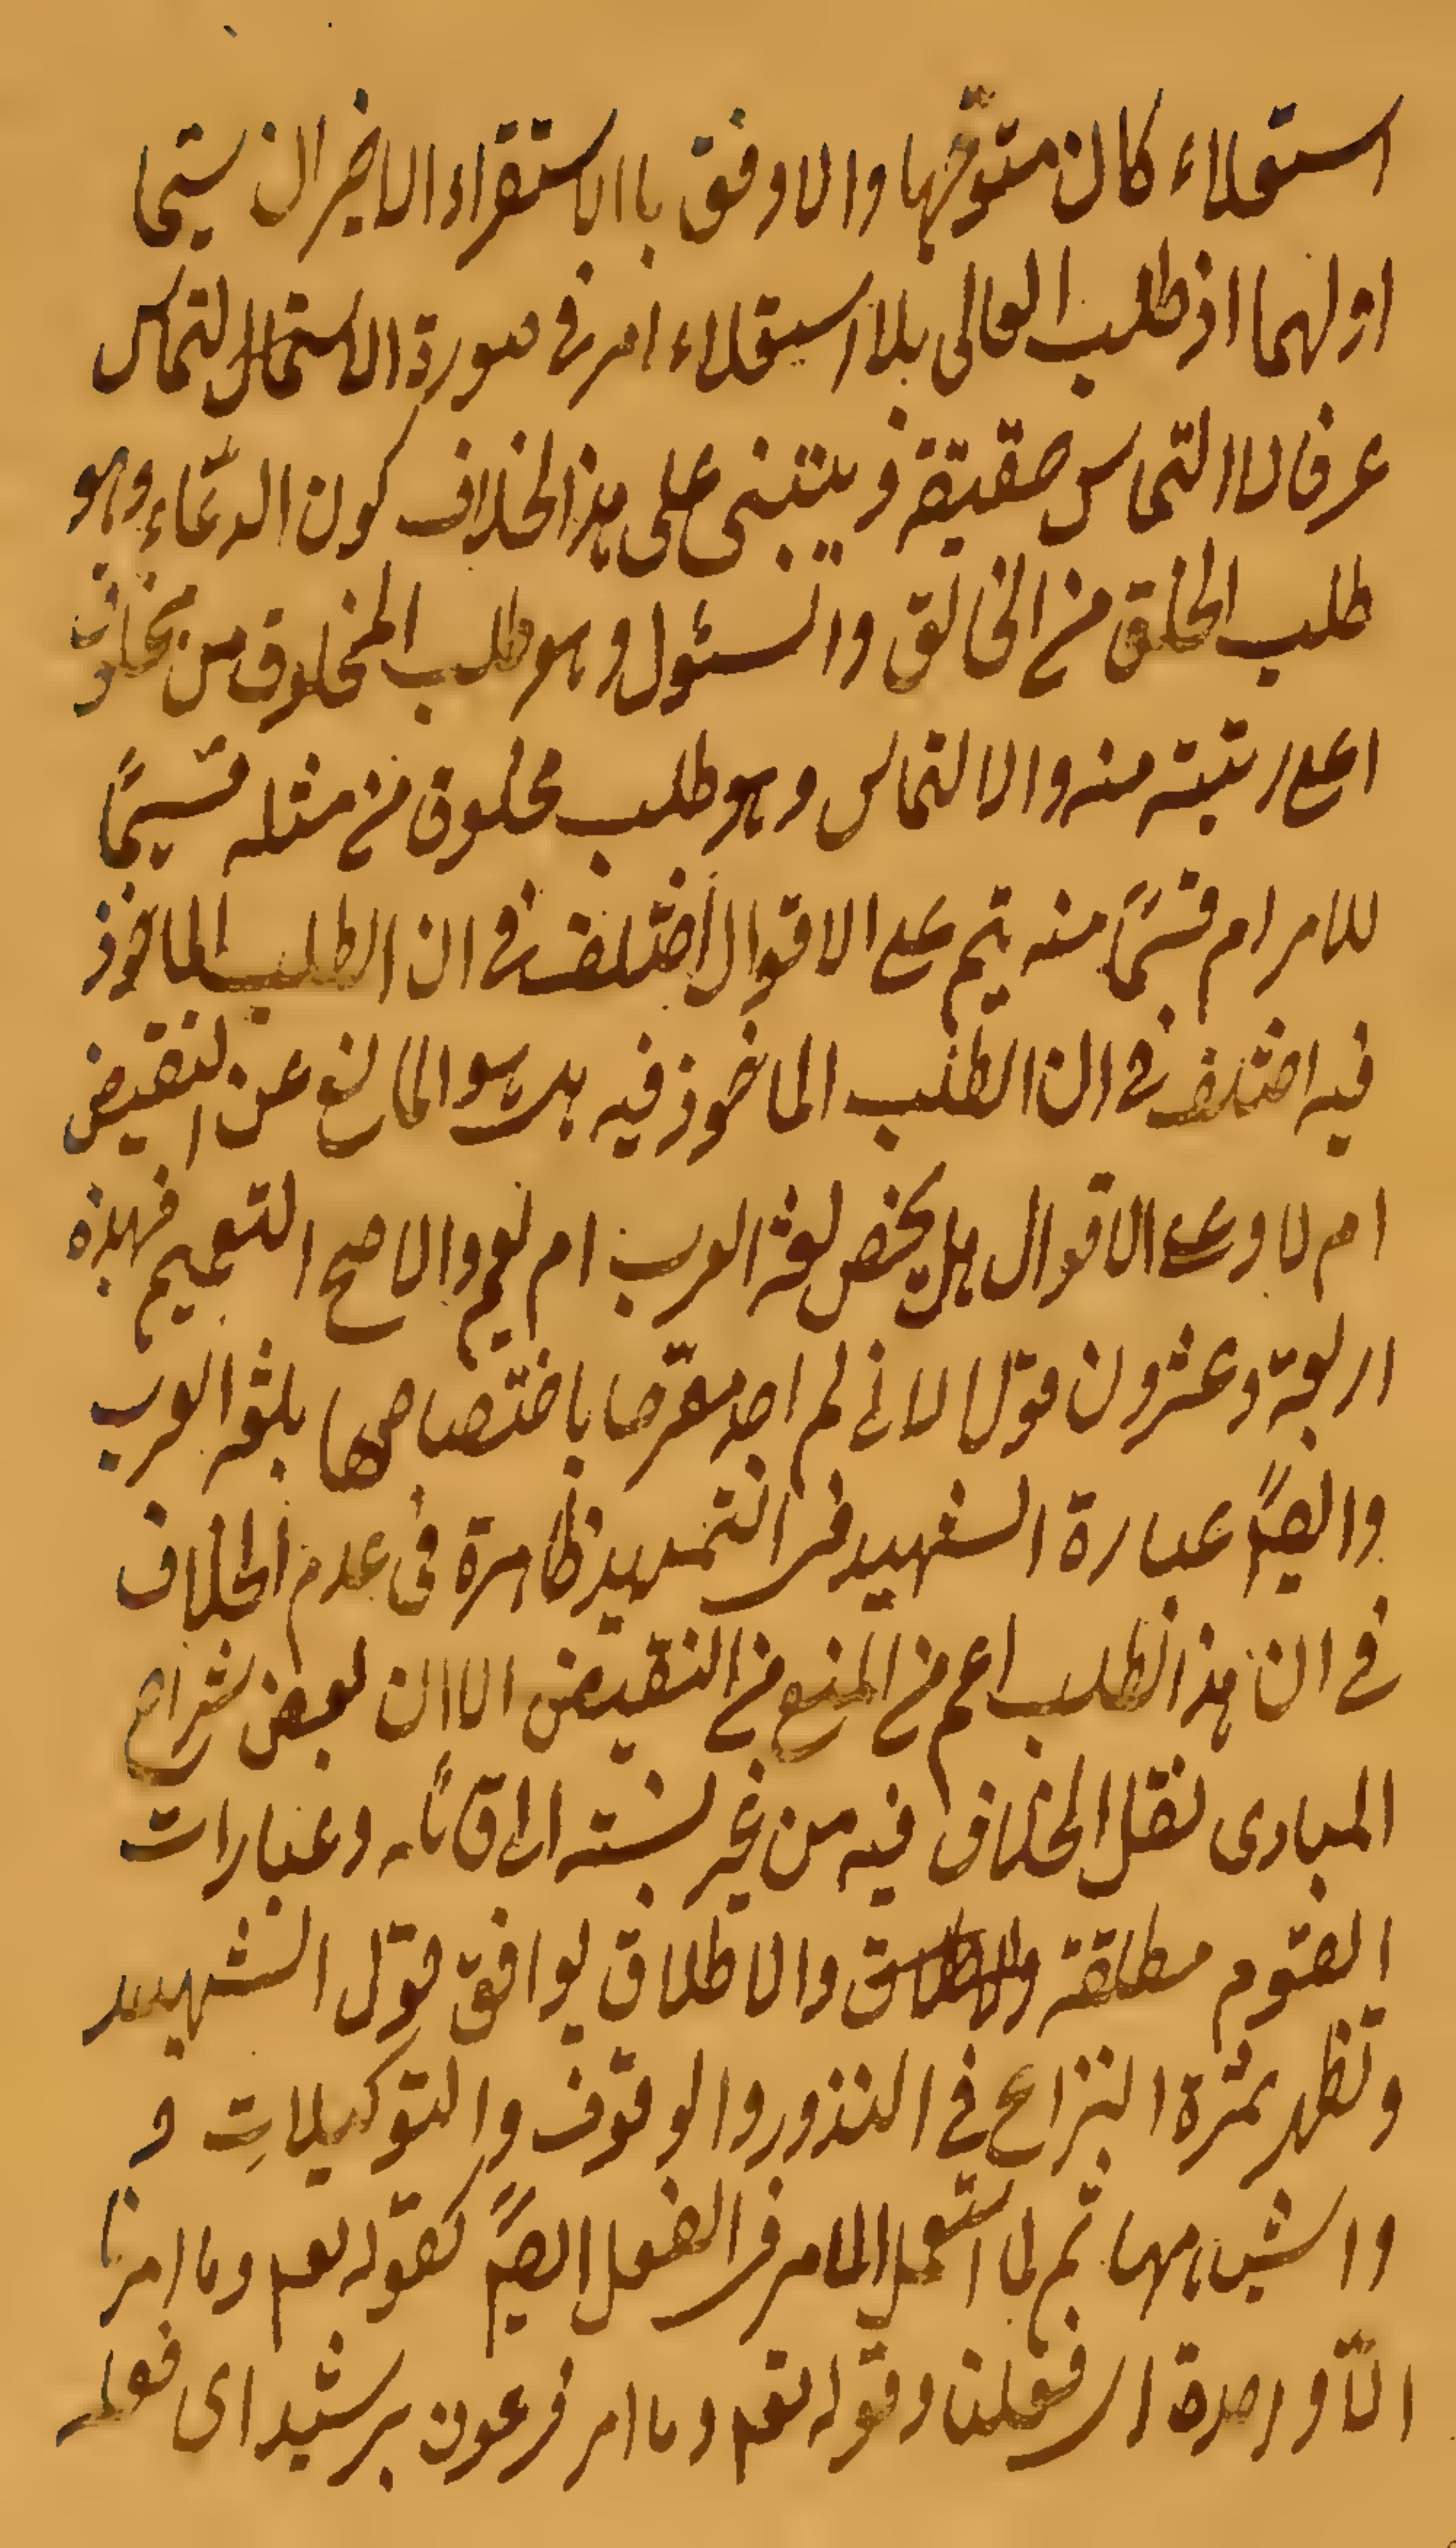 استعلاء كان متوجّها والاوفق باالاستقراء الاخيران سيّما
اولهما اذ طلب العالى بلا استعلاء امر فى صورة الاستعمال التماس
عرفا لا التماس حقيقة و يبتنى على هذا الخلاف كون الدعّاء وهو
طلب الخلق من الخالق والسئول وهو طلب المخلوق من مخلوق
اعلى رتبته منه والالتماس وهو طلب مخلوق من مثله قسيمًا
للامر ام قسمًا منه ثم على الاقوال اختلف فى ان الطلب الماخوذ
فيه اختلف فى ان الطلب الماخوذ فيه هل هو المانع عن النقيض
ام لا وعلى الاقوال هل يخص لغة العرب ام يعم والاصح التعميم فهذه
اربعة وعشرون قولا لانى لم اجد مصرّحا باختصاصها بلغة العرب
وايضًا عبارة الشهيد فى التمهيد ظاهرة فى عدم الخلاف
فى ان هذا الطلب اعم من المنع من النقيض الا ان بعض شراح
المبادى نقل الخلاف فيه من غير نسبته الى قائله وعبارات
القوم مطلقة والاطلاق والاطلاق يوافق قول الشهيد
وتظهر ثمرة النزاع فى النذور والوقوف والتوكيلاتِ و
واشباهها ثم لما استعمل الامر فى الفعل ايضًا كقوله تعم وما امرنا
الّا واحدة اى فعلنا وقوله تعم وما امر فرعون برشيد اى فعله